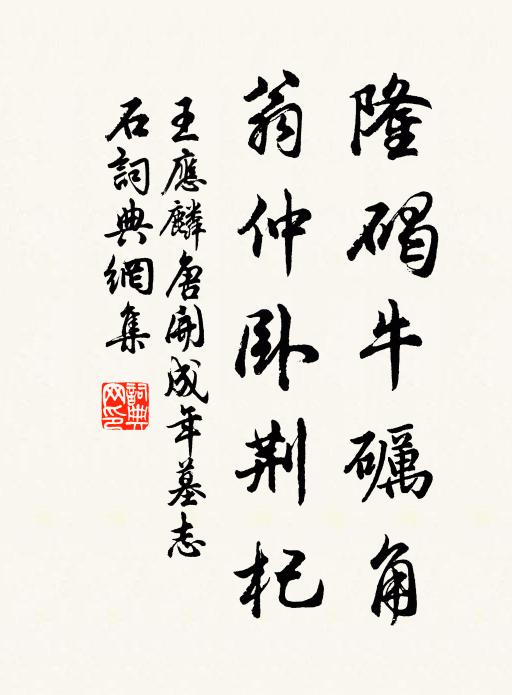 隆碣牛礪角
翁仲卧荆杞
王應麟唐開成年墓志
石詞典網集
詞典網印